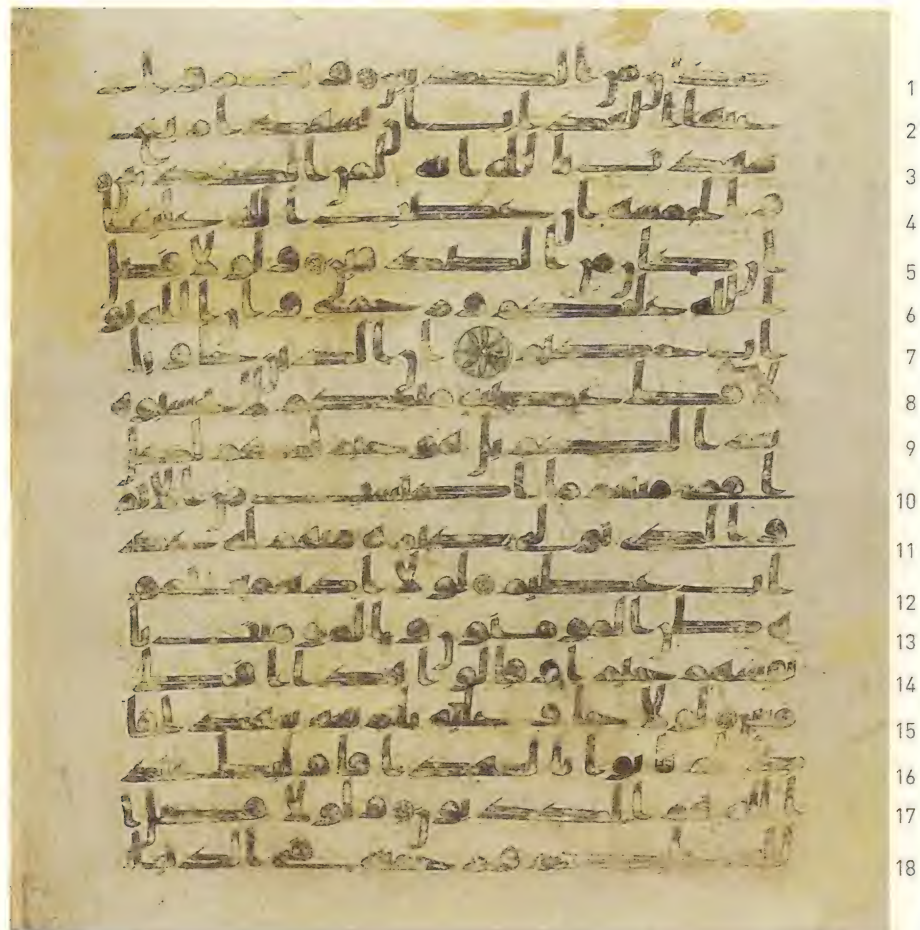 كان من الكذبين ويدروا
عنها العذاب ان تشهد اربع
شهدت بالله انه لمن الكذبين
والخمسه ان غضب الله عليها
ان كان من الصدقين ولولا فضل
الله عليكم ورحمته وان الله تو
اب حكيم ان الذين جاو با
لافك عصبه منكم لا تحسبوه
شرا لكم بل هو خير لكم لكل
امرى منهم ما اكتسب من الاثم
والذى تولى كبره منهم له عذ
اب عظيم لولا اذ سمعتموه
ظن المومنون والمومنت با
نفسهم خيرا وقالوا هذا افك
مبين لولا جاو عليه باربعه شهدا فا
ذ لم ياتوا بالشهدا فاوليك عند
الله هم الكذبون ولولا فضل ا
لله عليكم ورحمته فى الدنيا
1
2
3
4
5
6
7
8
9
10
11
12
13
14
15
16
17
18